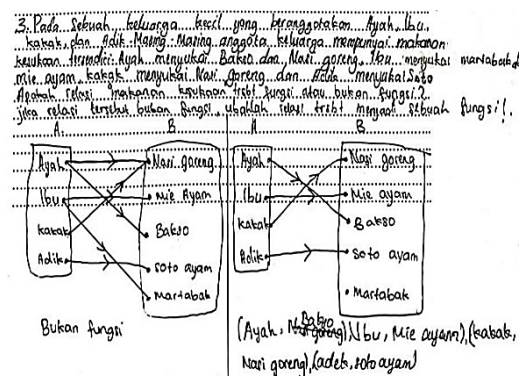 3. Pada sebuah keluarga kecil yang beranggotakan Ayah, Ibu,
kakak, dan Adik. Masing-Masing anggota keluarga mempunyai makanan
kesukaan tersendiri. Ayah menyukai Bakso dan Nasi goreng, Ibu menyukai martabak &
mie ayam, kakak menyukai Nasi goreng dan Adik menyukai Soto
Apakah relasi makanan kesukaan trsbt fungsi atau bukan fungsi?
jika relasi tersebut bukan fungsi, ubahlah relasi trsbt menjadi sebuah fungsi!.
A B
Ayah Nasi goreng
Ibu Mie Ayam
kakak Bakso
Adik soto ayam
Martabak
Bukan fungsi
A B
Ayah Nasi goreng
Ibu Mie ayam
kakak Bakso
Adik Soto ayam
Martabak
Bakso
(Ayah, Nasi goreng), (Ibu, Mie ayam), (kakak,
Nasi goreng), (adek, soto ayam)